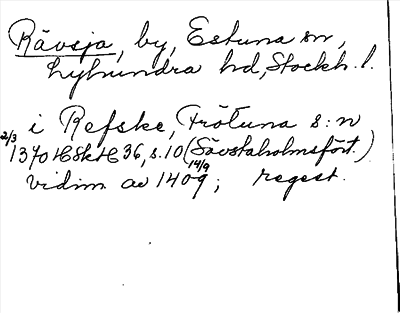 Rävsja, by, Estuna sn,
Lyhundra hd, Stockh. l.
i Refske, Frötuna s:n
2/3 1370 HSkH 36, s. 10 (Sävstaholmsfört.)
vidim av 14/9 1409; regest.